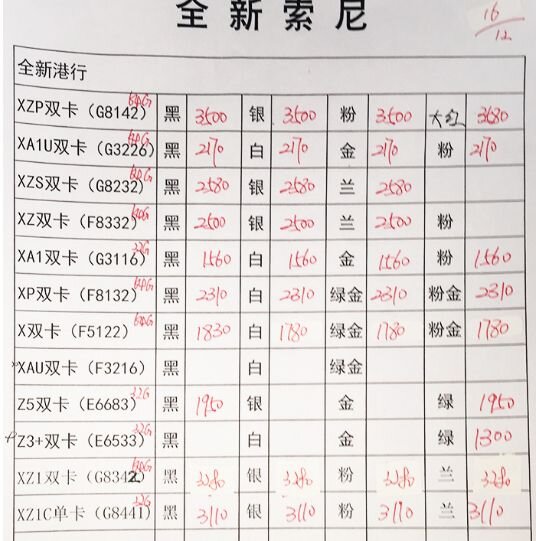 全新索尼
16/12
全新港行
XZP双卡（G8142）64G 黑 3500 银 3500 粉 3500 大红 3680
XA1U双卡（G3226）64G 黑 2170 白 2170 金 2170 粉 2170
XZS双卡（G8232）64G 黑 2580 银 2580 兰 2580
XZ双卡（F8332）64G 黑 2500 银 2500 兰 2500 粉
XA1双卡（G3116）32G 黑 1560 白 1560 金 1560 粉 1560
XP双卡（F8132）64G 黑 2310 白 2310 绿金 2310 粉金 2310
X双卡（F5122）64G 黑 1830 白 1780 绿金 1780 粉金 1780
XAU双卡（F3216） 黑 白 绿金
Z5双卡（E6683）32G 黑 1950 银 金 绿 1950
Z3+双卡（E6533）32G 黑 白 金 绿 1300
XZ1双卡（G8342）64G 黑 3280 银 3280 粉 3280 兰 3280
XZ1C单卡（G8441）32G 黑 3110 银 3110 粉 3110 兰 3110